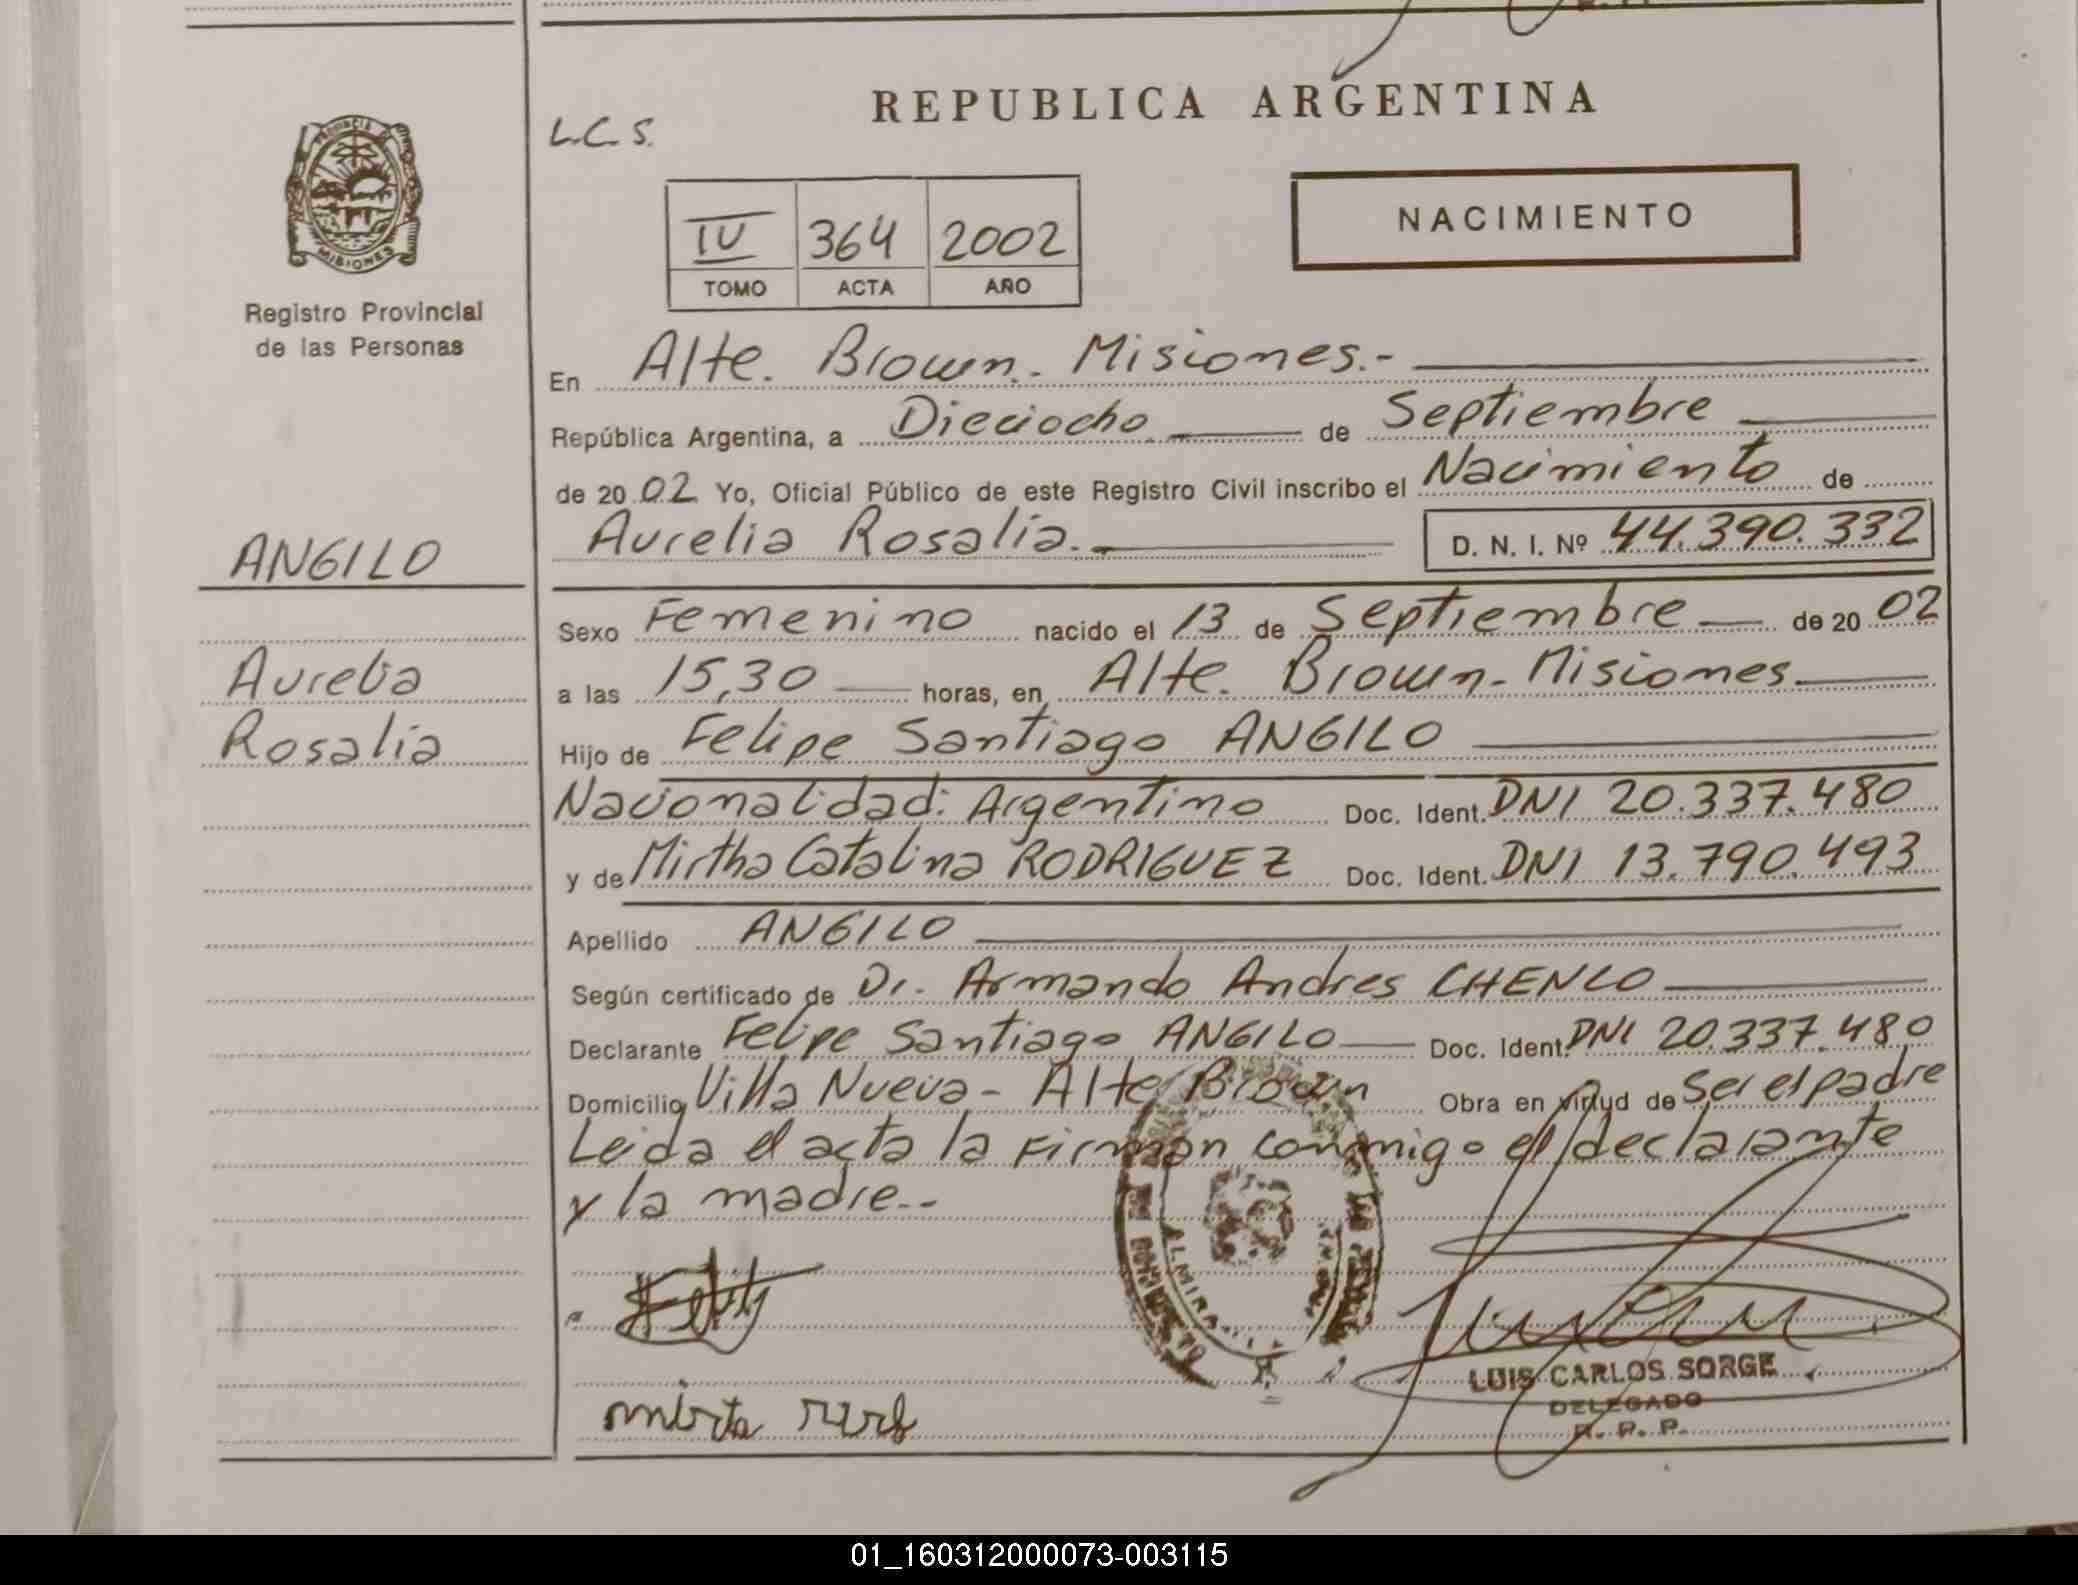 REPUBLICA ARGENTINA
L.C.S.
NACIMIENTO
IV 364 2002
TOMO ACTA AÑO
PROVINCIA DE
MISIONES
Registro Provincial
de las Personas
En Alte. Brown. Misiones.-
República Argentina, a Dieciocho de Septiembre
de 2002 Yo, Oficial Público de este Registro Civil inscribo el Nacimiento de
Aurelia Rosalia. D. N. I. Nº 44.390.332
ANGILO
Aurelia
Rosalia
Sexo Femenino nacido el 13 de Septiembre de 2002
a las 15,30 horas, en Alte. Brown - Misiones.
Hijo de Felipe Santiago ANGILO
Nacionalidad: Argentino Doc. Ident. DNI 20.337.480
y de Mirtha Catalina RODRIGUEZ Doc. Ident. DNI 13.790.493
Apellido ANGILO
Según certificado de Dr. Armando Andres CHENLO
Declarante Felipe Santiago ANGILO Doc. Ident. DNI 20.337.480
Domicilio Villa Nueva - Alte Brown Obra en virtud de Ser el padre
Leida el acta la Firman conmigo el declarante
y la madre.-
LUIS CARLOS SORGE
DELEGADO
R. P. P.
mirta
01_160312000073-003115